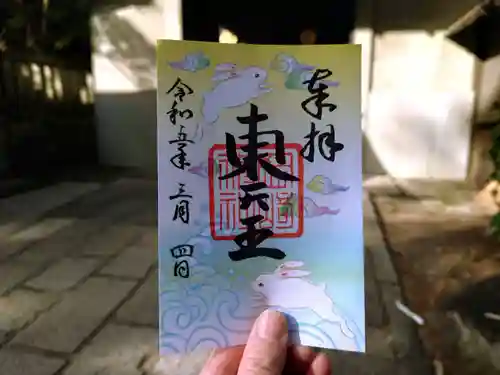 奉拝
東天王
令和五年三月四日